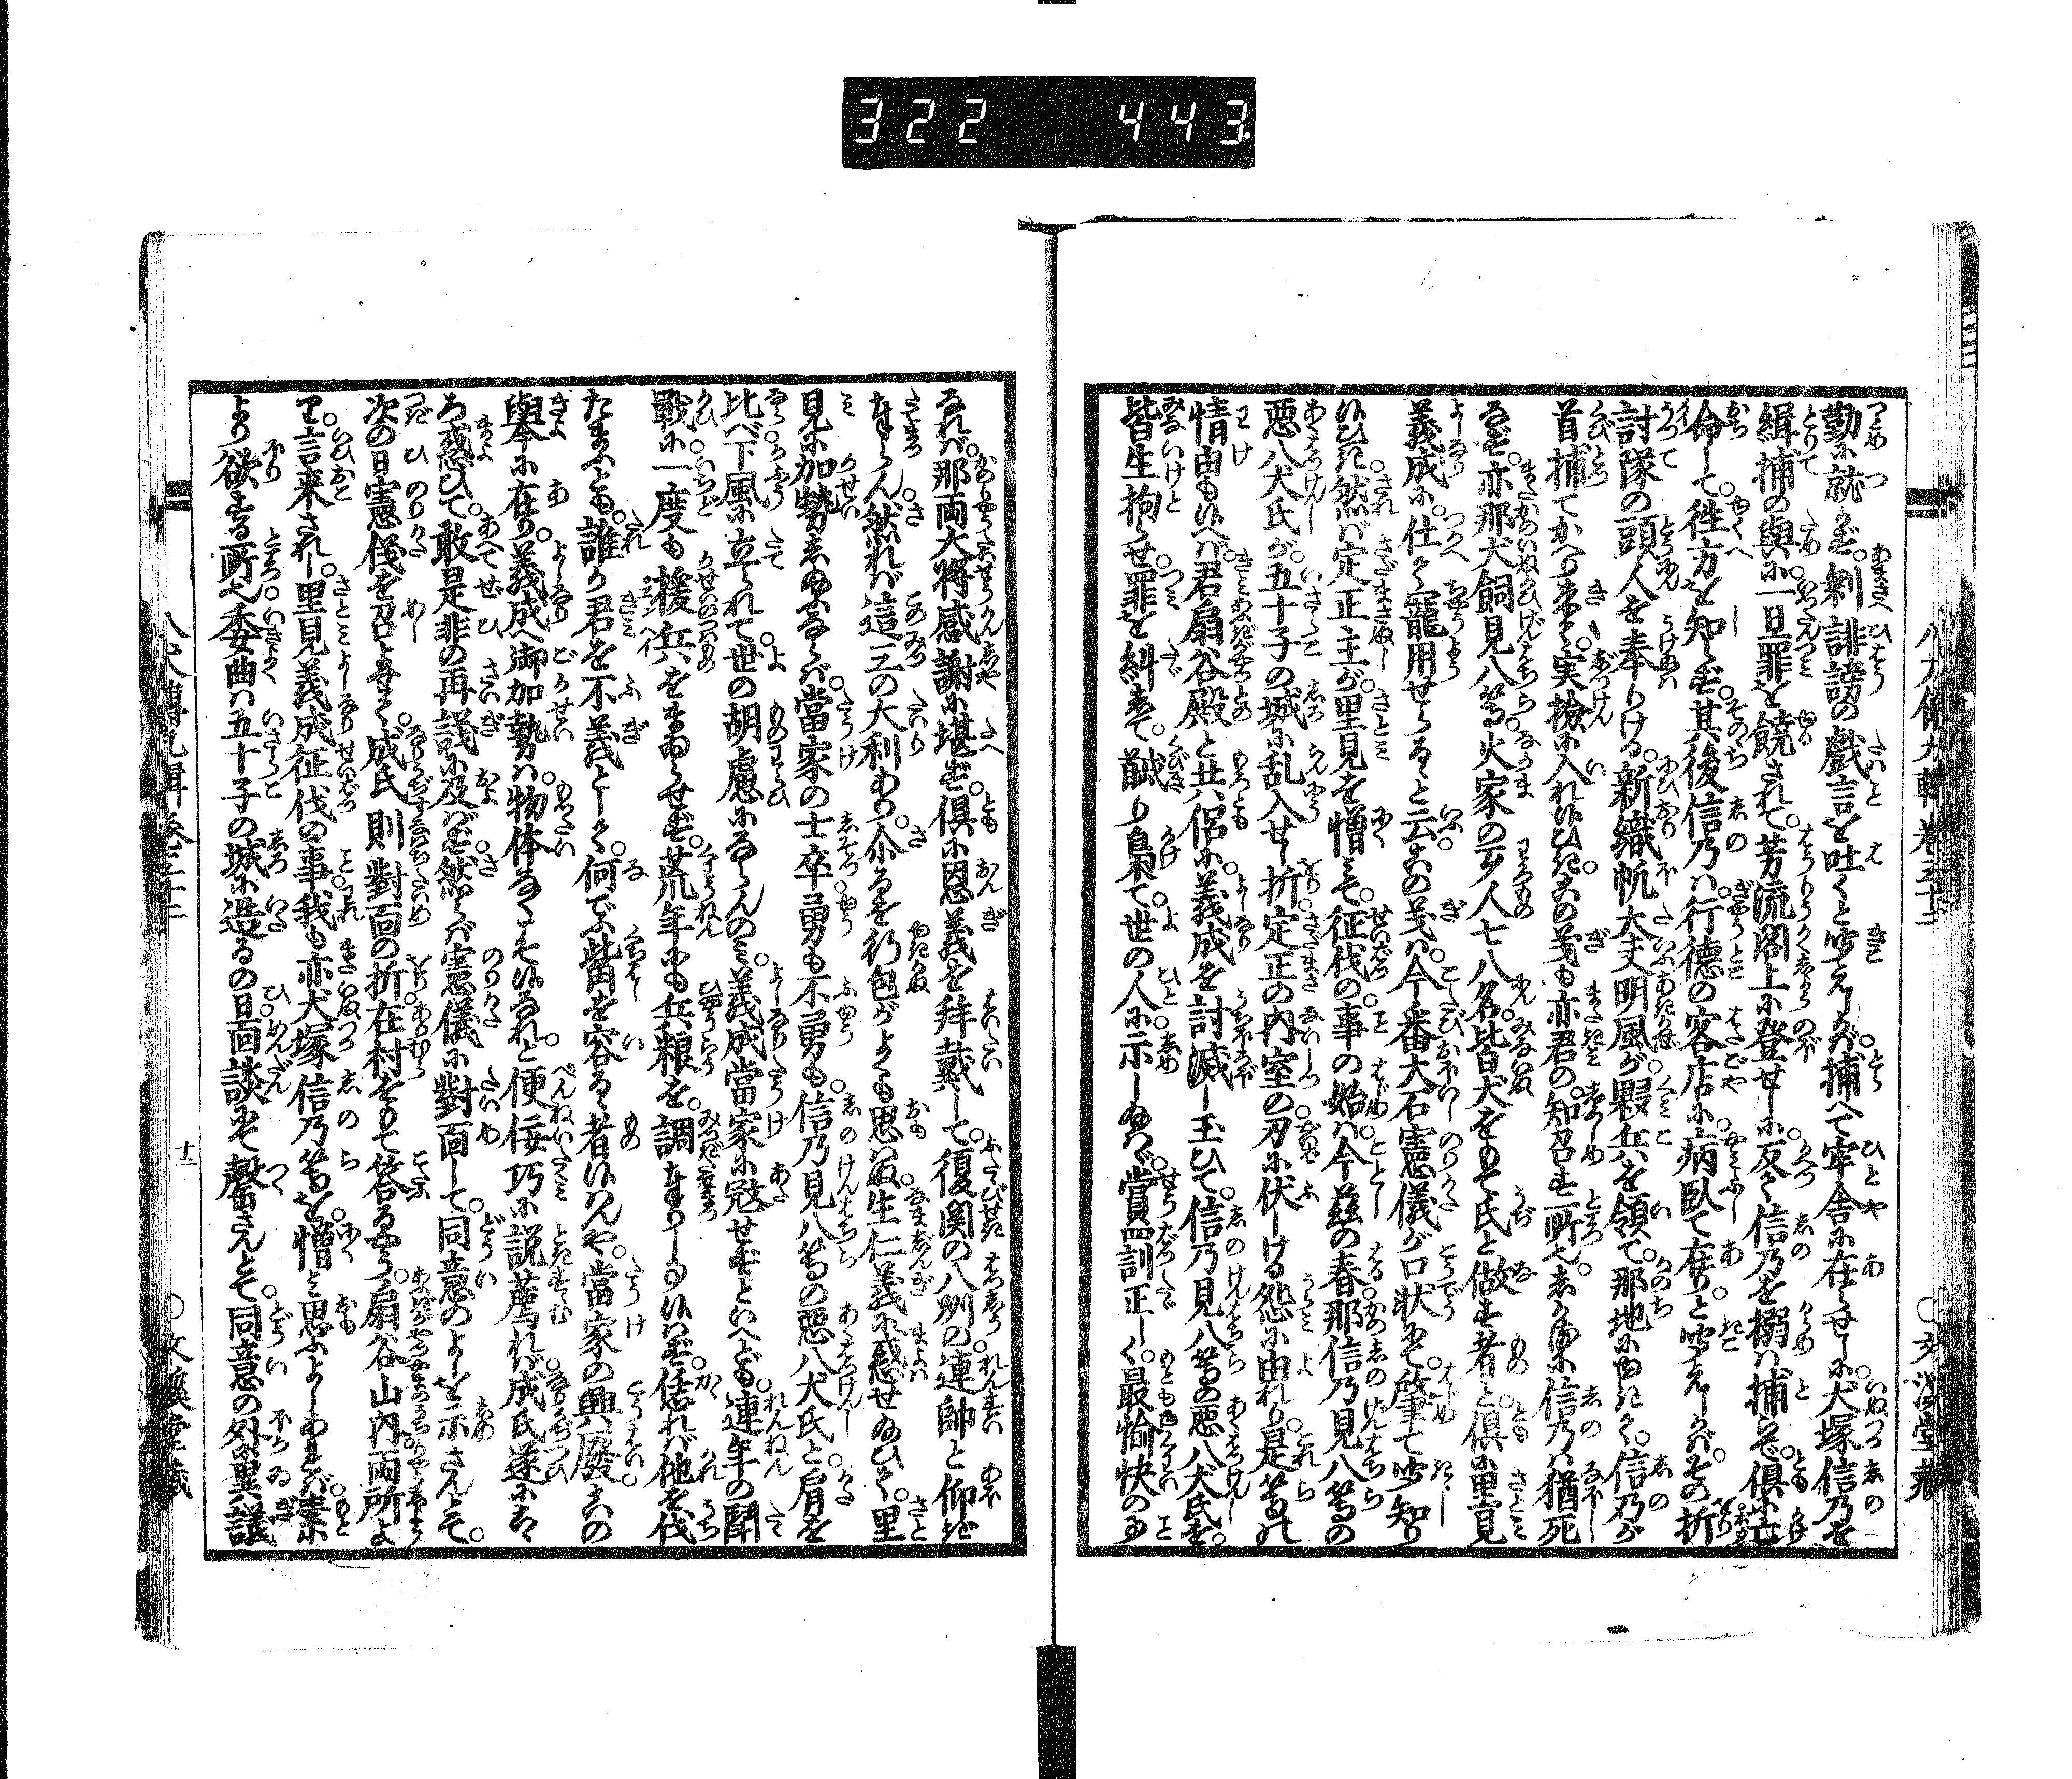 322 443
八犬傳九輯巻三十二
○文溪堂藏
勤に就かず。剰誹謗の戯言を吐くと聞えしかば。捕へて牢舎に在らせしに。犬塚信乃を
緝捕の與に。一旦罪を饒されて。芳流閣上に登せしに。反て信乃を搦め捕らで。倶に亡
命して。徃方を知らず。其後信乃は。行徳の客店に。病臥て在りと聞えしかば。その折
討隊の頭人を奉りける。新織帆太夫明風が。夥兵を領て。那地に由きて。信乃が
首捕てかへり来て。実撿に入れ候ひき。この義も亦君の。知召す所也。しかるに信乃は猶死
なず。亦那犬飼見八等。火家の丁人七八名。皆犬をもて氏と做す者と。倶に里見
義成に。仕て寵用せらるゝと云。この義は。今番大石憲儀が口状にて。肇て聞知り
候ひき。然ば定正主が。里見を憎みて。征伐の事の始は。今茲の春。那信乃見八等の
悪八犬氏が。五十子の城に乱入せし折。定正の内室の。刃に伏しける。怨に由れり。是等の
情由も候へば。君扇谷殿と共侶に。義成を討滅し玉ひて。信乃見八等の悪八犬氏を。
皆生拘らせ。罪を糾して。馘り梟て。世の人に示し給はゞ。賞罰訓正しく。最愉快の事
なれば。那両大将感謝に堪ず。倶に恩義を拜戴して。復関の八州の。連帥と仰ぎ
奉らん。然れば這三の大利あり。介るを行包がよくも思はぬ。生仁義に惑せ給ひて。里
見に加勢し給ふならば。當家の士卒。勇も不勇も。信乃見八等の悪八犬氏と。肩を
比べ下風に立られて。世の胡慮にならんのみ。義成當家に寇せずといへども。連年の鬪
戦に一度も援兵をまゐらせず。荒年にも兵粮を。調奉りし事候はず。恁れば他を伐
たまふとも。誰か君を不義として。何でふ觜を容るゝ者候はんや。當家の興廢この
擧に在り。義成へ御加勢は。物体なくこそ候なれと。便佞巧に説薦れば。成氏遂にう
ち惑ひて。敢是非の再議に及ばず。然らば憲儀に對面して。同意のよしを示さんとて。
次の日憲儀を召よせて。成氏則對面の折。在村をもて答るやう。扇谷山内両所よ
り。言来されし。里見義成征伐の事。我も亦犬塚信乃等を。憎み思ふよしあれば。素
より欲する所也。委曲は五十子の城に造るの日。面談にて罄さんとて。同意の外に異議
八犬傳九輯巻三十二
十二
○文溪堂藏